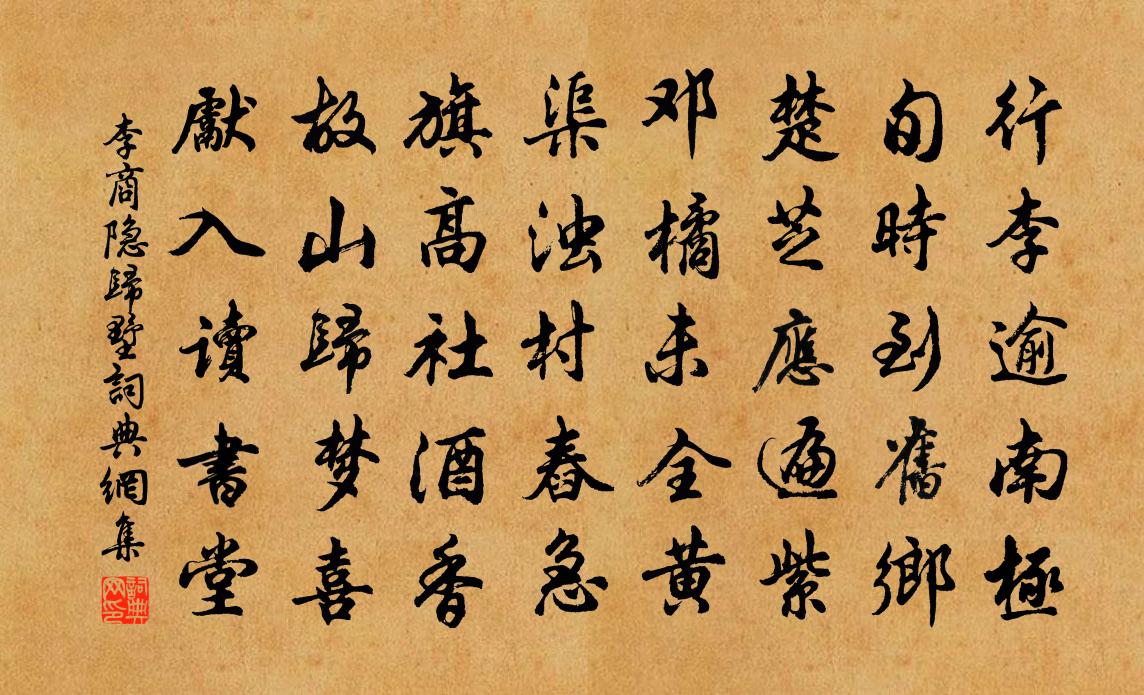 行李逾南極
旬時到舊鄉
楚芝應遍紫
邓橘未全黄
渠浊村舂急
旗高社酒香
故山歸梦喜
獻入讀書堂
李商隐歸墅詞典網集
詞典网印